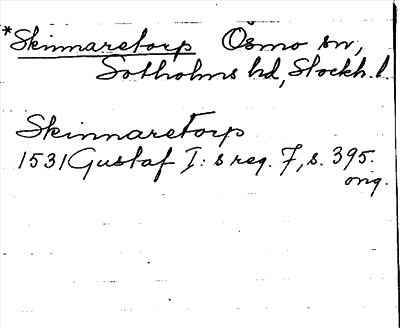 *Skinnaretorp Ösmo sn,
Sotholms hd, Stockh. l.
Skinnaretorp
1531 Gustaf I: s reg. 7, s. 395.
orig.